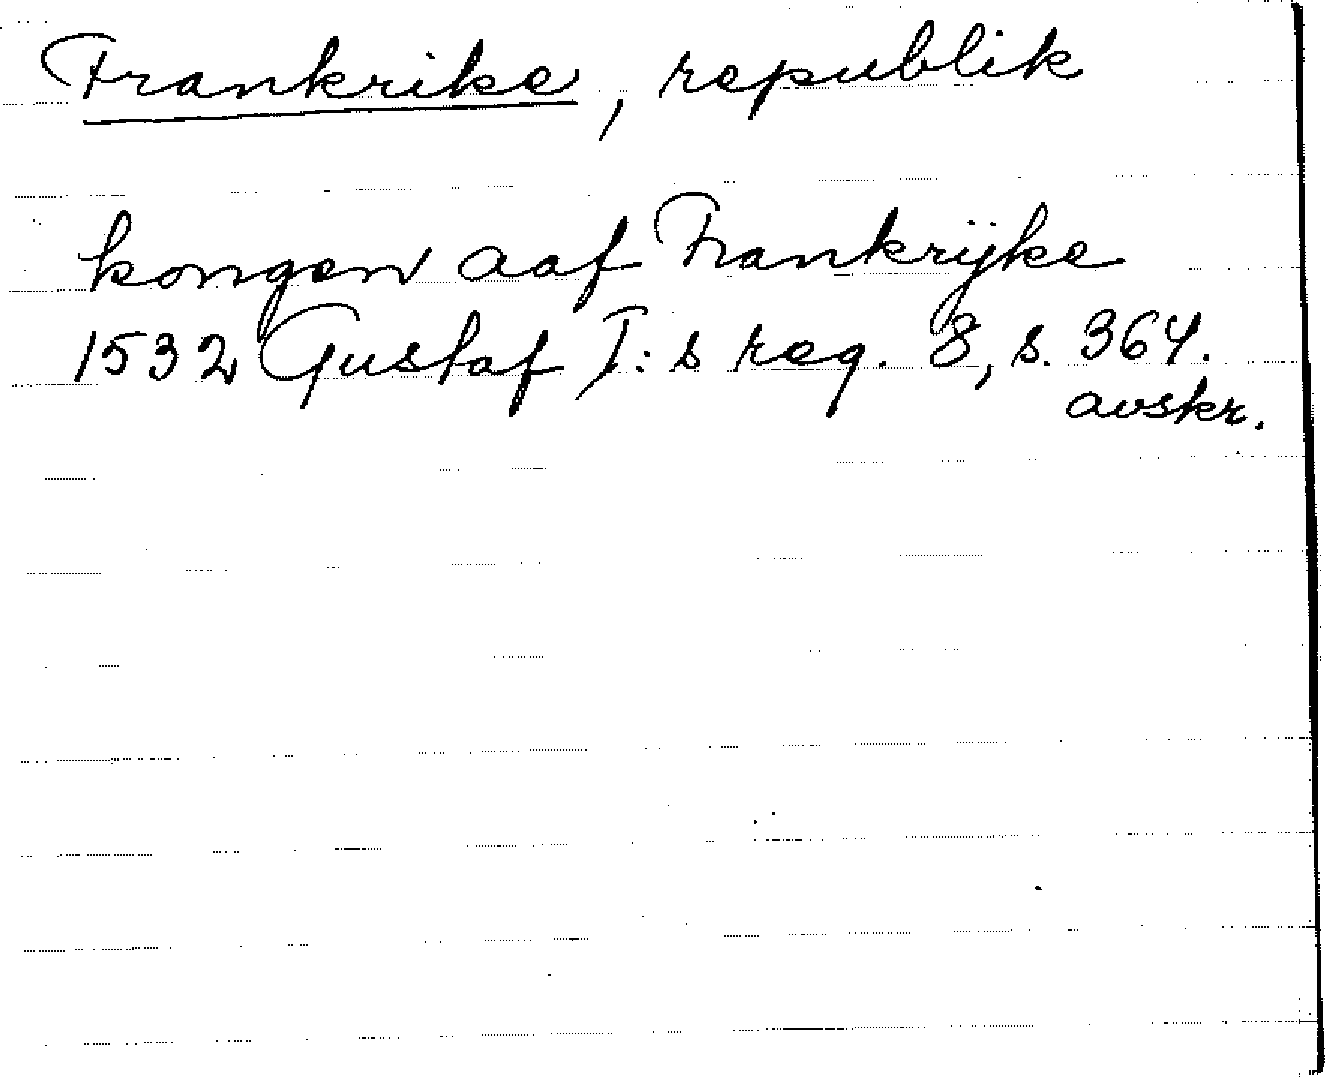 Frankrike, republik
kongen aaf Frankrÿke
1532 Gustaf I:s reg. 8, s. 364.
avskr.